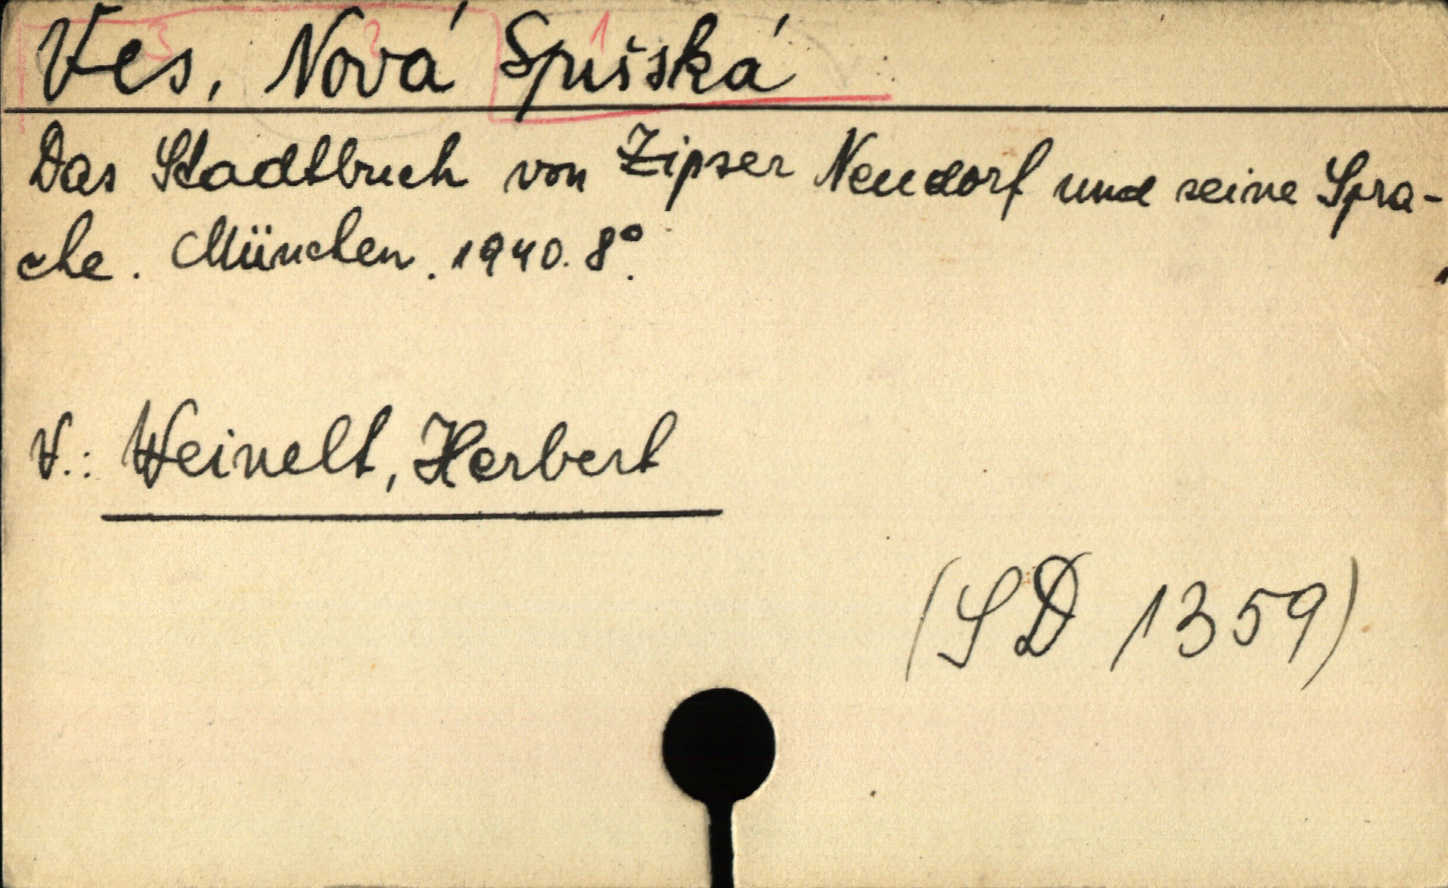 Ves, Nová Spišská
3 2 1
Das Stadtbuch von Zipser Neudorf und seine Spra-
che. München. 1940. 8°.
V.: Weinelt, Herbert
(SD 1359)